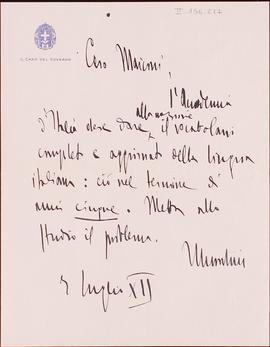 II 156.227
IL CAPO DEL GOVERNO
Caro Marconi,
l'Accademia
alla nazione
d'Italia deve dare il vocabolario
completo e aggiornato della lingua
italiana: ciò nel termine di
anni cinque. Metta allo
studio il problema.
Mussolini
5 luglio XII